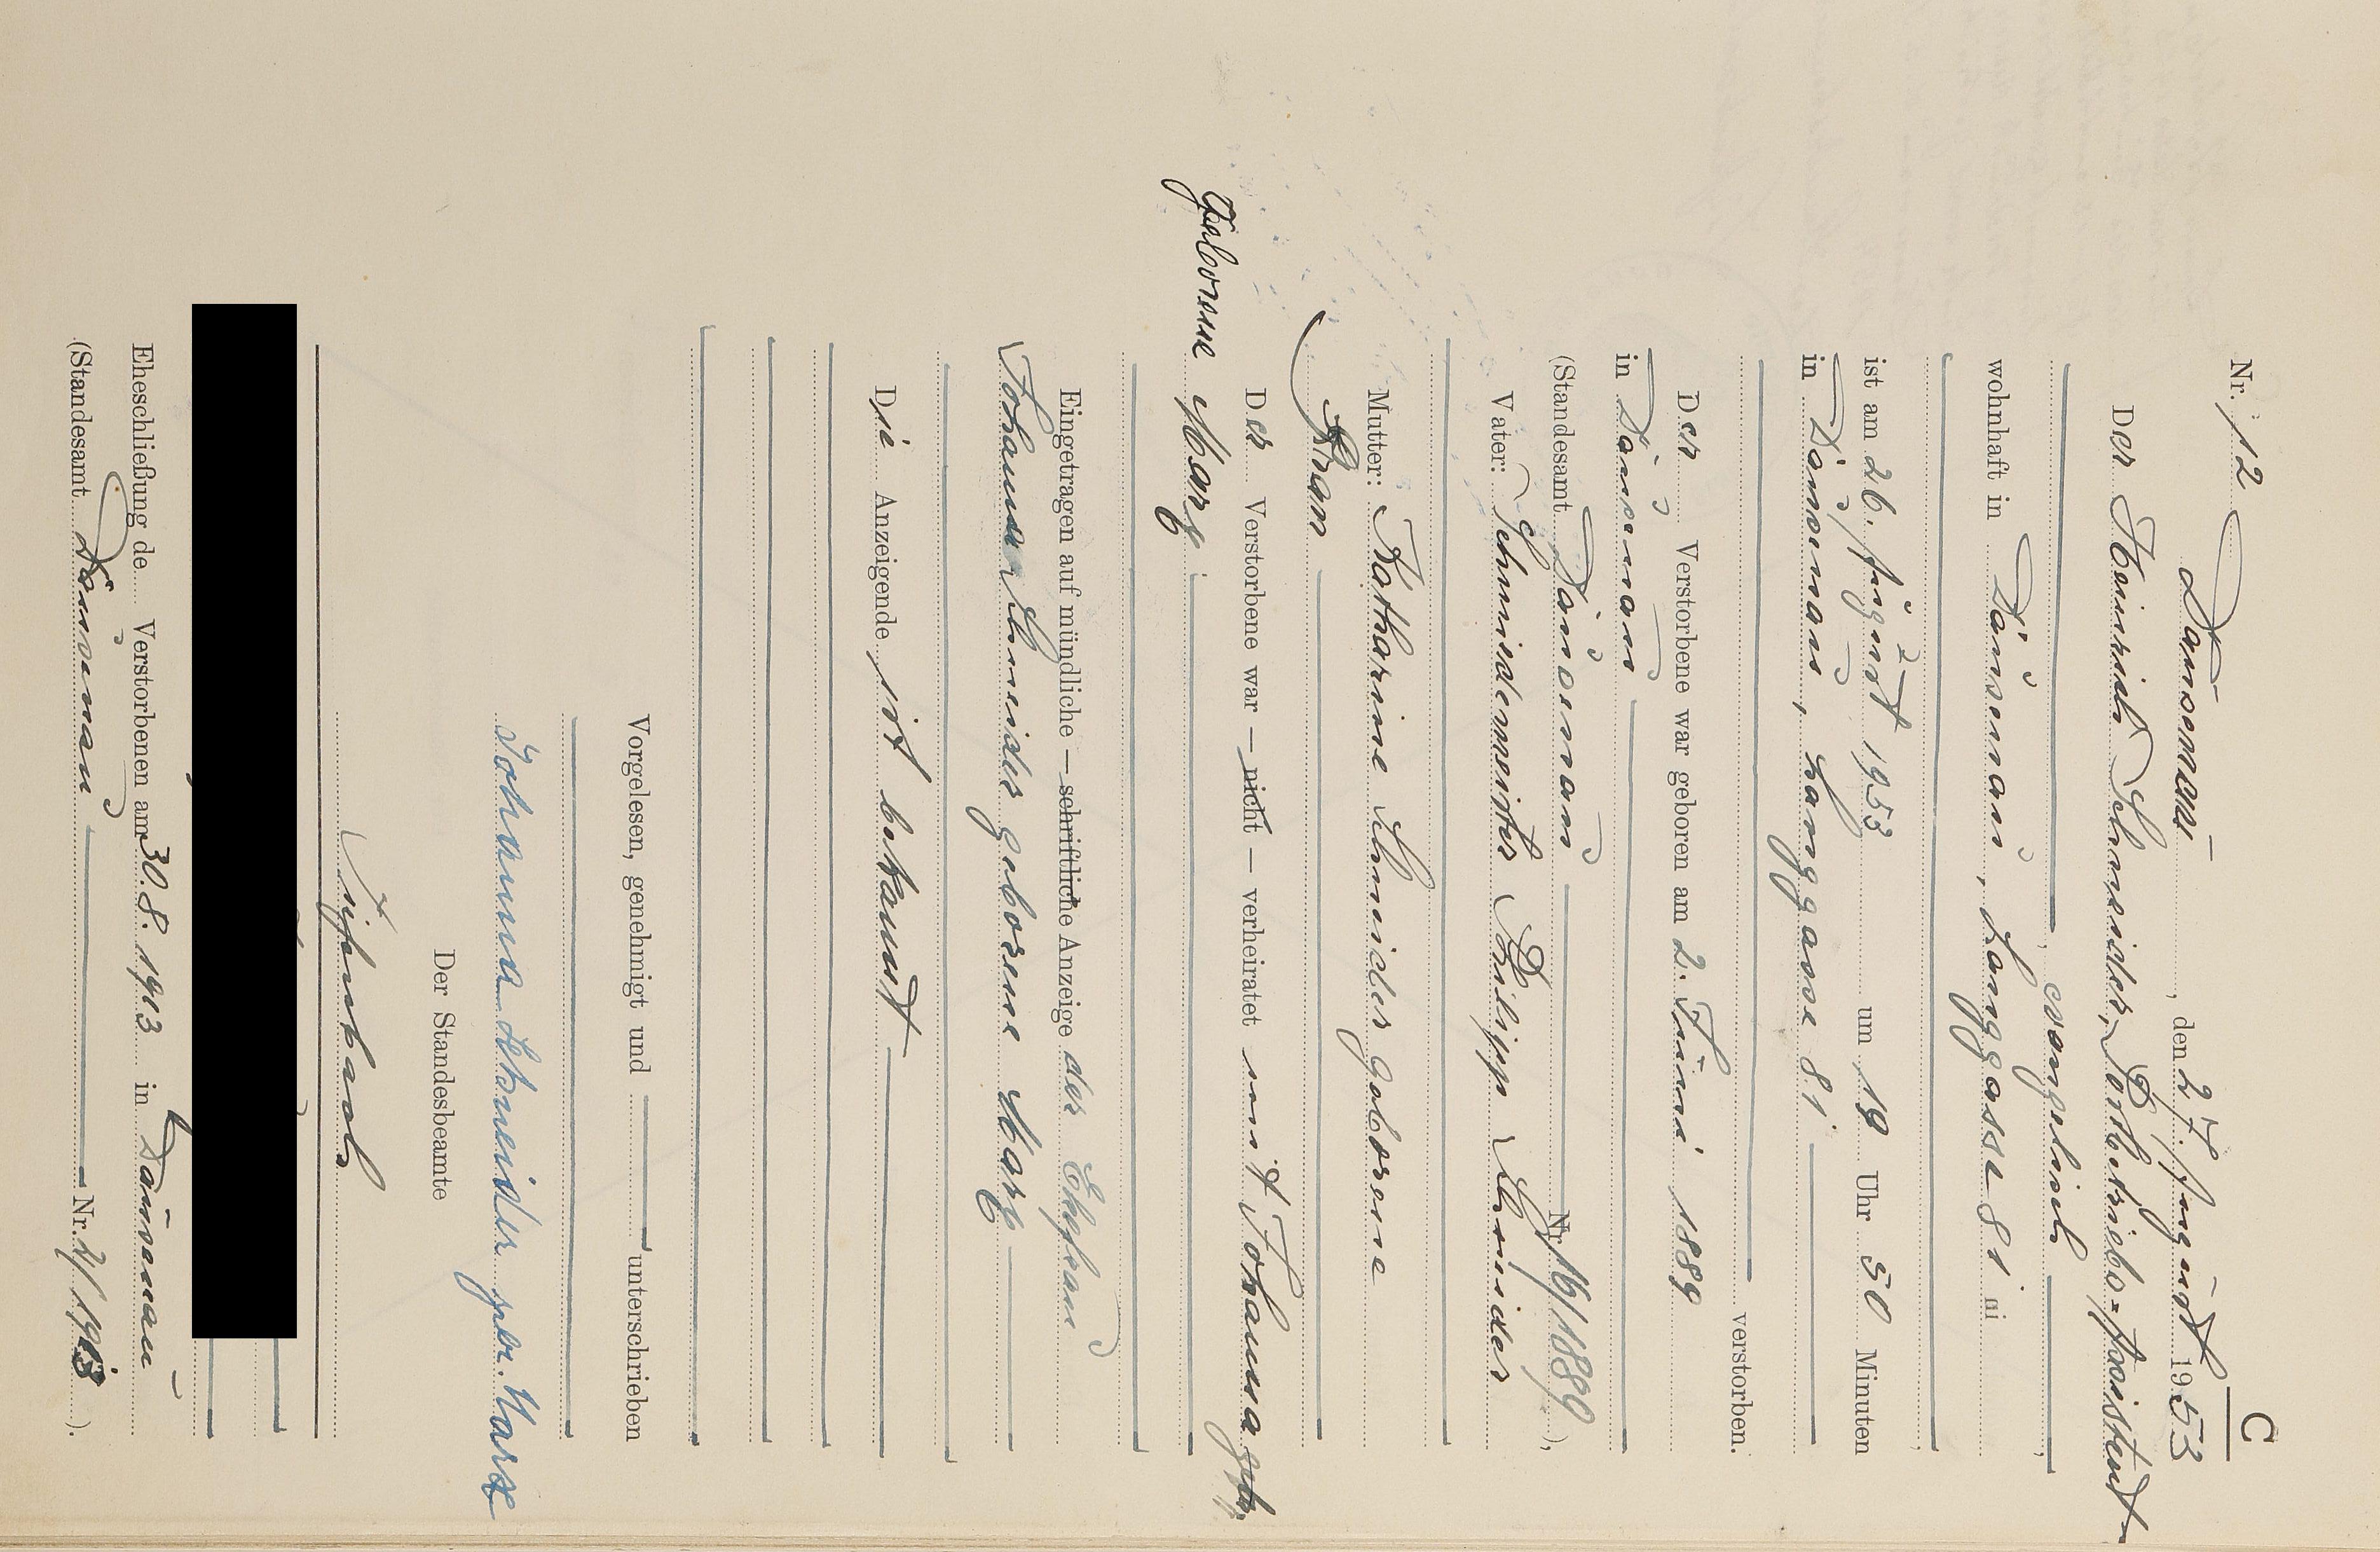 C
Nr. 12
Dausenau, den 27. August 1953
Der Heinrich Schneider, Betriebs-Assistent
evangelisch
wohnhaft in Dausenau, Langgasse 81
ist am 26. August 1953 um 19 Uhr 50 Minuten
in Dausenau, Langgasse 81
verstorben.
Der Verstorbene war geboren am 2. Juni 1889
in Dausenau
(Standesamt Dausenau Nr. 16/1889),
Vater: Schmiedemeister Philipp Schneider
Mutter: Katharine Schneider geborene
Der Verstorbene war — nicht — verheiratet mit Johanna geb.
geborene Marx
Eingetragen auf mündliche — schriftliche Anzeige der Ehefrau
Johanna Schneider geborene Marx
Die Anzeigende ist bekannt
Vorgelesen, genehmigt und unterschrieben
Johanna Schneider geb. Marx
Der Standesbeamte
Eheschließung de Verstorbenen am 30.8.1913 in Dausenau
(Standesamt Dausenau Nr. 2/1913).